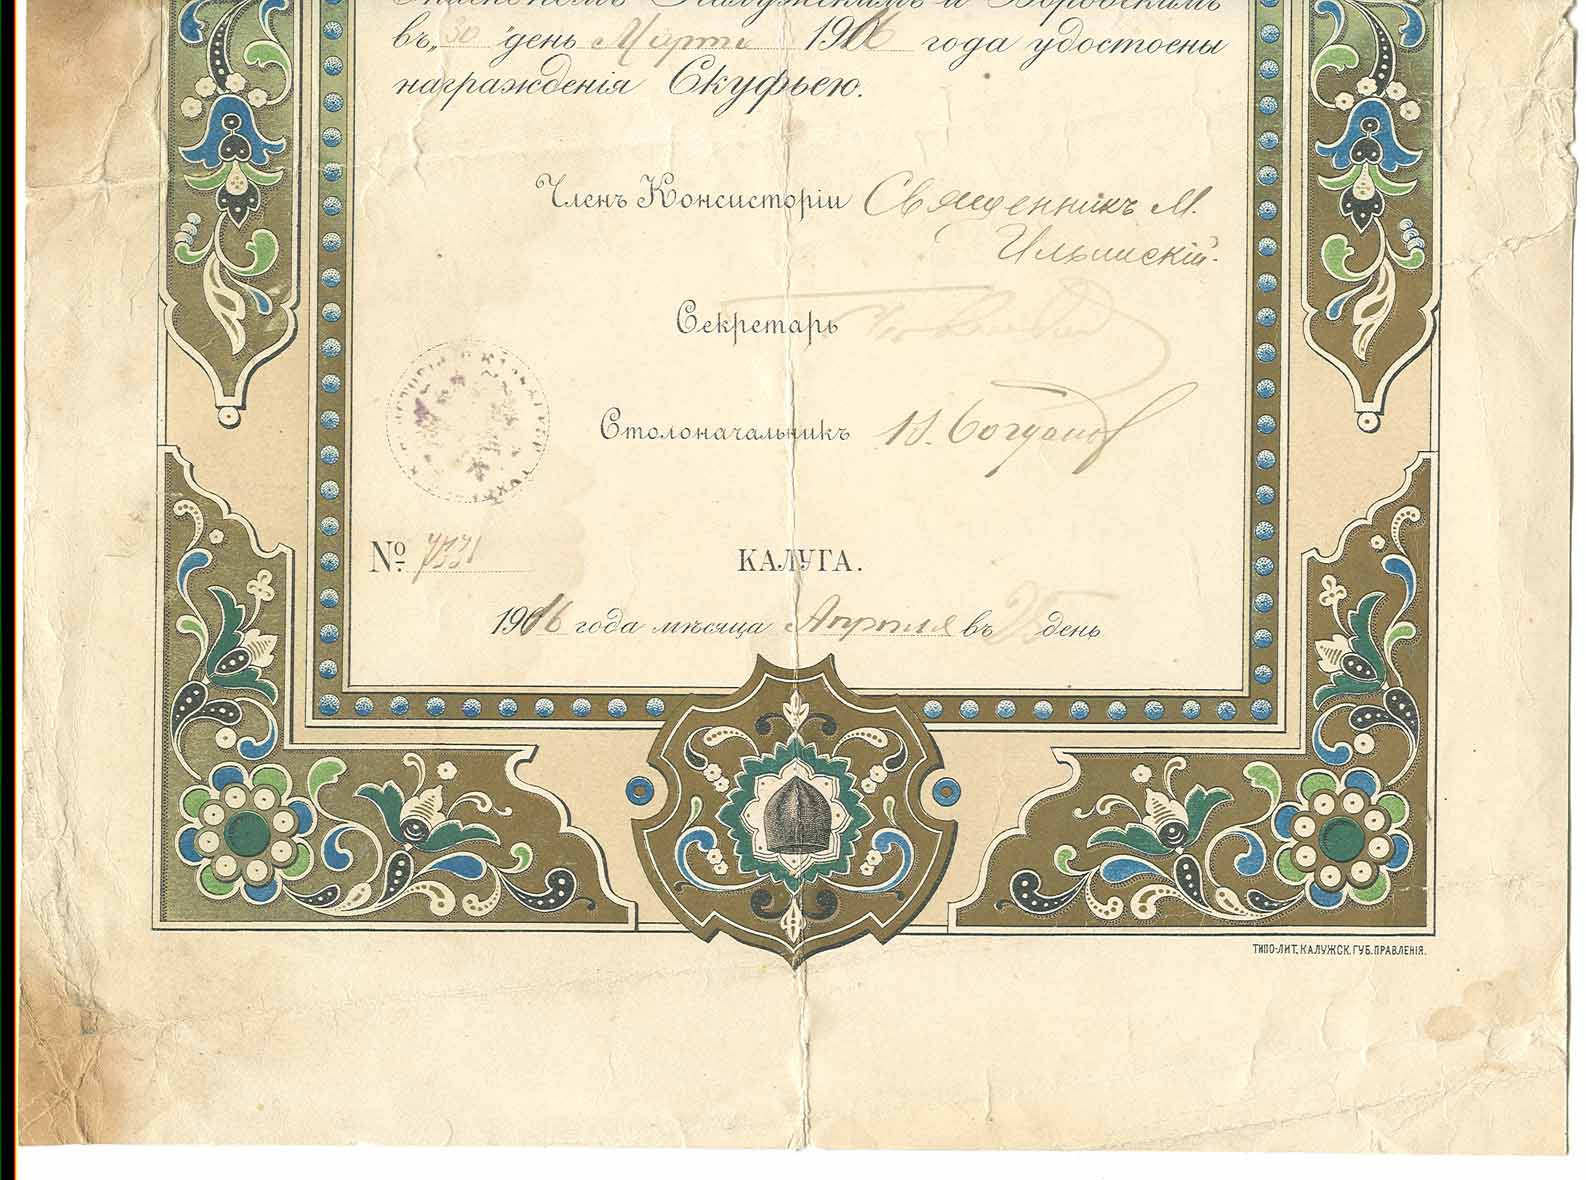 Епископомъ Калужскимъ и Боровскимъ
въ „30" день Марта 1916 года удостоены
награжденія Скуфьею.
Членъ Консисторіи Священникъ М.
Ильинскій.
Секретарь
Столоначальникъ В. Богданов
№ 7331
КАЛУГА.
1916 года мѣсяца Апрѣля въ 25 день
ТИПО-ЛИТ. КАЛУЖСК. ГУБ. ПРАВЛЕНІЯ.